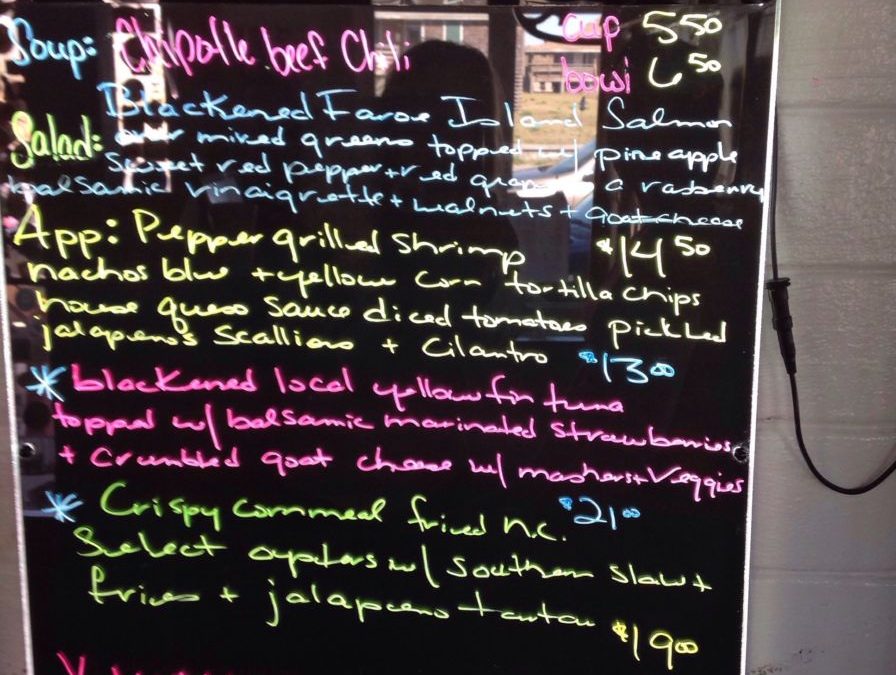 Soup: Chipotle beef Chili cup 5 50
bowl 6 50
Blackened Faroe Island Salmon
Salad: over mixed greens topped w/ pineapple
sweet red pepper + red grapes a rasberry
balsamic vinaigrette + walnuts + goat cheese
App: Pepper grilled shrimp $14 50
nachos blue + yellow corn tortilla chips
house queso sauce diced tomatoes pickled
jalapeno's scallions + cilantro $13 00
* blackened local yellowfin tuna
topped w/ balsamic marinated strawberries
+ crumbled goat cheese w/ mashers + veggies
* Crispy cornmeal fried n.c. $21 00
Select oysters w/ southern slaw +
fries + jalapeno tartar $19 00